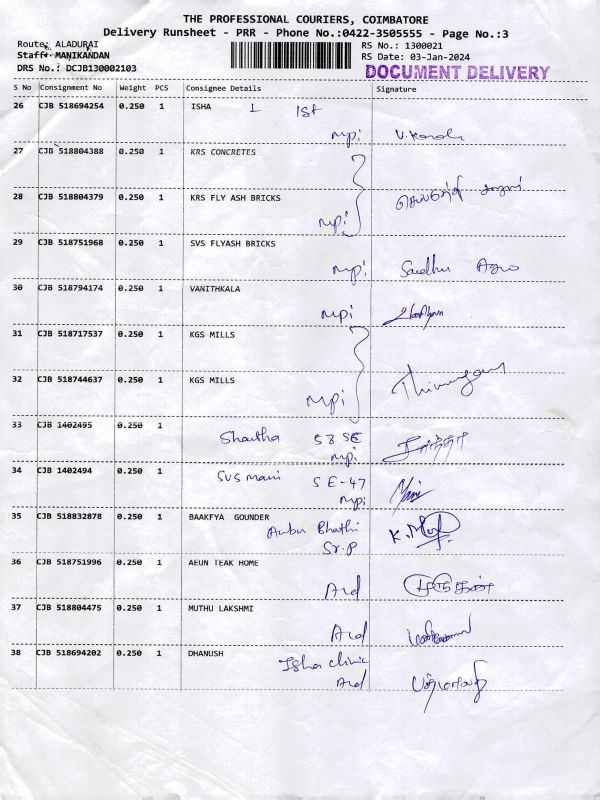 THE PROFESSIONAL COURIERS, COIMBATORE
Delivery Runsheet - PRR - Phone No.:0422-3505555 - Page No.:3
Route: ALADURAI
RS No.: 1300021
Staff: MANIKANDAN
RS Date: 03-Jan-2024
DRS No.: DCJB130002103
DOCUMENT DELIVERY
S No Consignment No Weight PCS Consignee Details Signature
26 CJB 518694254 0.250 1 ISHA 1 Ist
mpi
27 CJB 518804388 0.250 1 KRS CONCRETES
28 CJB 518804379 0.250 1 KRS FLY ASH BRICKS
mpi
29 CJB 518751968 0.250 1 SVS FLYASH BRICKS
mpi Sandhu Agro
30 CJB 518794174 0.250 1 VANITHKALA
mpi
31 CJB 518717537 0.250 1 KGS MILLS
32 CJB 518744637 0.250 1 KGS MILLS
mpi
33 CJB 1402495 0.250 1
mpi
34 CJB 1402494 0.250 1 SVS mani SE-47
mpi Mani
35 CJB 518832878 0.250 1 BAAKFYA GOUNDER
Sr.P
36 CJB 518751996 0.250 1 AEUN TEAK HOME
Ard
37 CJB 518804475 0.250 1 MUTHU LAKSHMI
Ard
38 CJB 518694202 0.250 1 DHANUSH
Isha clinic
Ard